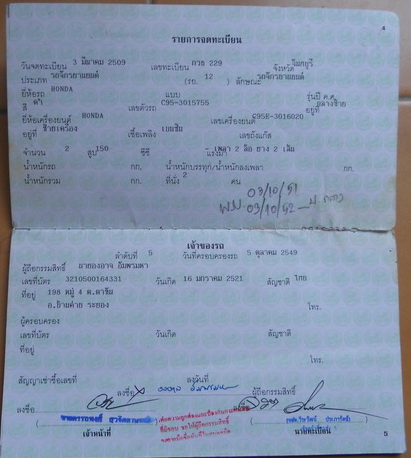 4
รายการจดทะเบียน
วันจดทะเบียน 3 มีนาคม 2509 เลขทะเบียน 229 จังหวัด
ประเภท รถจักรยานยนต์ (รย. 12) ลักษณะ รถจักรยานยนต์
ยี่ห้อรถ HONDA แบบ รุ่นปี ค.ศ.
สี ดำ เลขตัวรถ C95-3015755 อยู่ที่ กลางซ้าย
ยี่ห้อเครื่องยนต์ HONDA เลขเครื่องยนต์ C95E-3016020
อยู่ที่ ซ้ายเครื่อง เชื้อเพลิง เบนซิน เลขถังแก๊ส
จำนวน 2 สูบ 150 ซีซี แรงม้า เพลา 2 ล้อ ยาง 2 เส้น
น้ำหนักรถ กก. น้ำหนักบรรทุก/น้ำหนักลงเพลา กก.
น้ำหนักรวม กก. ที่นั่ง 2 คน
03/10/51
03/10/52
เจ้าของรถ
ลำดับที่ 5 วันที่ครอบครองรถ 5 ตุลาคม 2549
ผู้ถือกรรมสิทธิ์
เลขที่บัตร 3210500164331 วันเกิด 16 มกราคม 2521 สัญชาติ ไทย
ที่อยู่ 198 หมู่ 4 ต.ตาขัน
อ.บ้านค่าย ระยอง โทร.
ผู้ครอบครอง
เลขที่บัตร วันเกิด สัญชาติ
ที่อยู่
โทร.
สัญญาเช่าซื้อเลขที่ ลงวันที่
ลงชื่อ ผู้ถือกรรมสิทธิ์
ลงชื่อ
เจ้าหน้าที่ นายทะเบียน
5